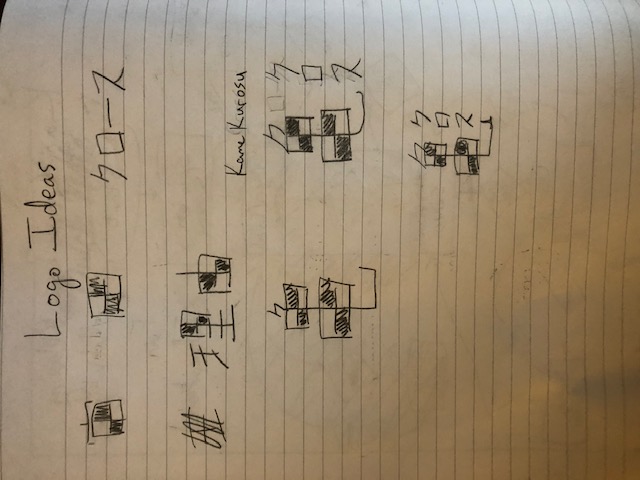 Logo Ideas
クロース
理由
Kame Kurosu
亀 亀 クロス
亀 クロス